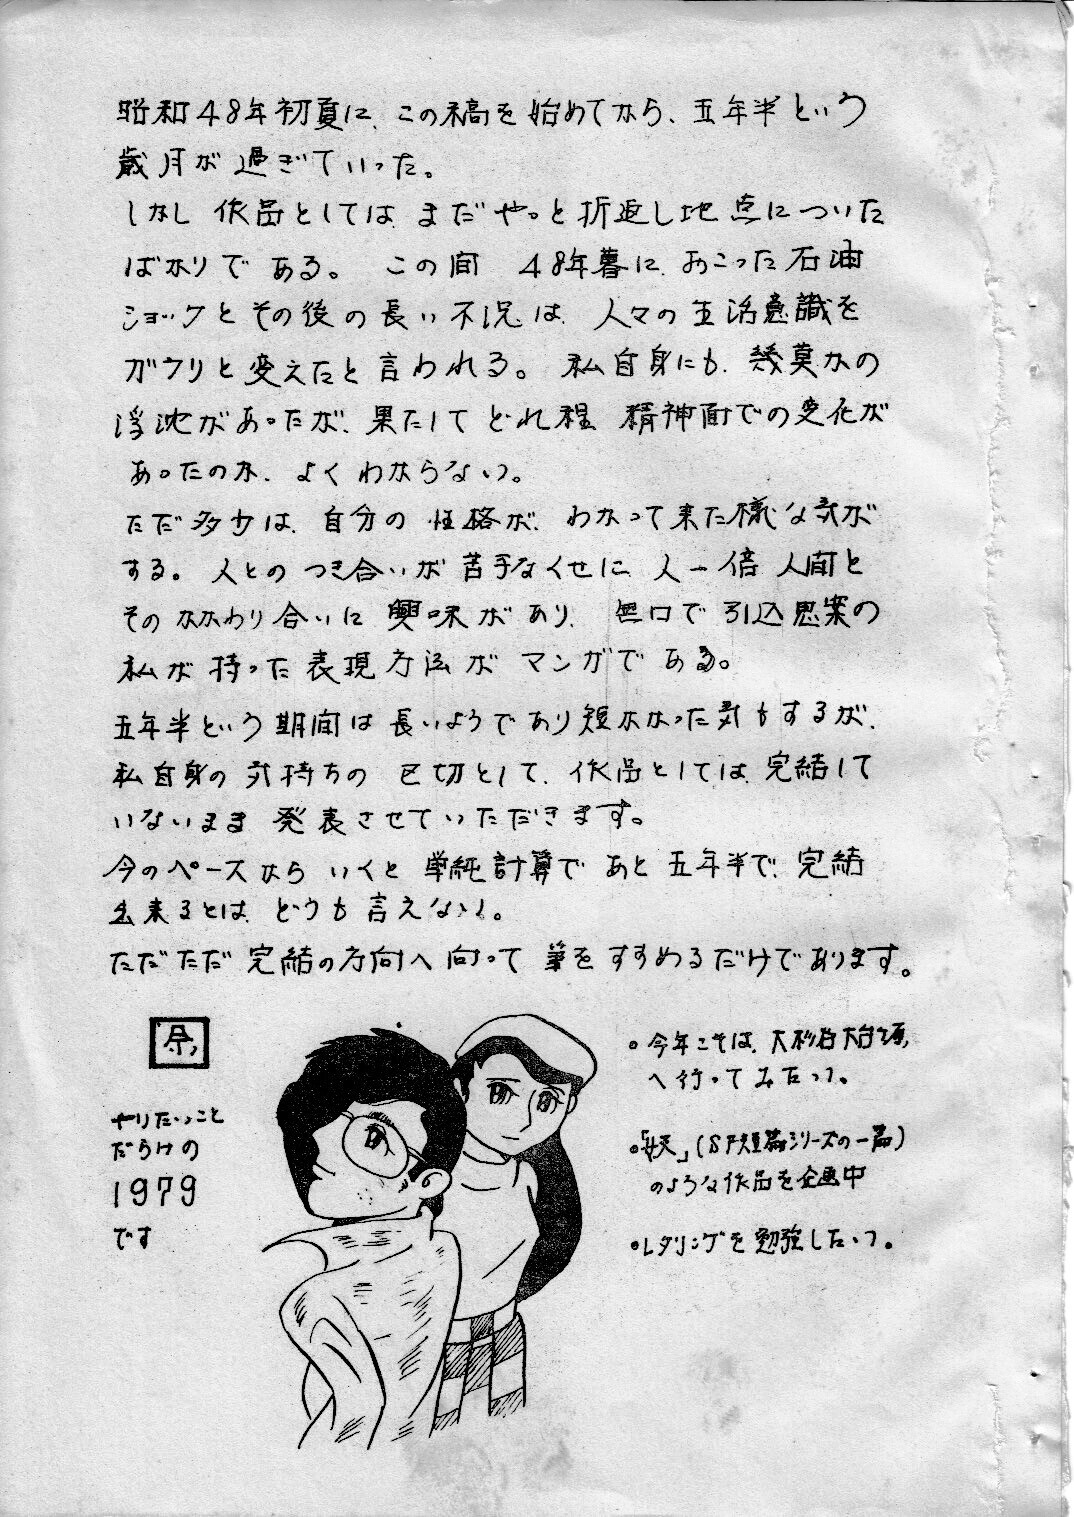 昭和48年初夏に、この稿を始めてから、五年半という
歳月が過ぎていった。
しかし作品としてはまだやっと折返し地点についた
ばかりである。この間 48年暮に、おこった石油
ショックとその後の長い不況は、人々の生活意識を
ガラリと変えたと言われる。私自身にも、幾莫かの
浮沈があったが、果たしてどれ程 精神面での変化が
あったのか、よくわからない。
ただ多少は、自分の性格が、わかって来た様な気が
する。人とのつき合いが苦手なくせに、人一倍 人間と
そのかかわり合いに興味があり、無口で引込思案の
私が持った表現方法がマンガである。
五年半という期間は長いようであり短かかった気もするが、
私自身の気持ちの区切として、作品としては、完結して
いないまま発表させていただきます。
今のペースならいくと単純計算であと五年半で、完結
出来るとは、どうも言えない。
ただただ完結の方向へ向って筆をすすめるだけであります。
やりたいこと
だらけの
1979
です
・今年こそは、大杉谷大台ヶ原
へ行ってみたい。
・「妖」(SF短篇シリーズの一篇)
のような作品を企画中
・レタリングを勉強したい。